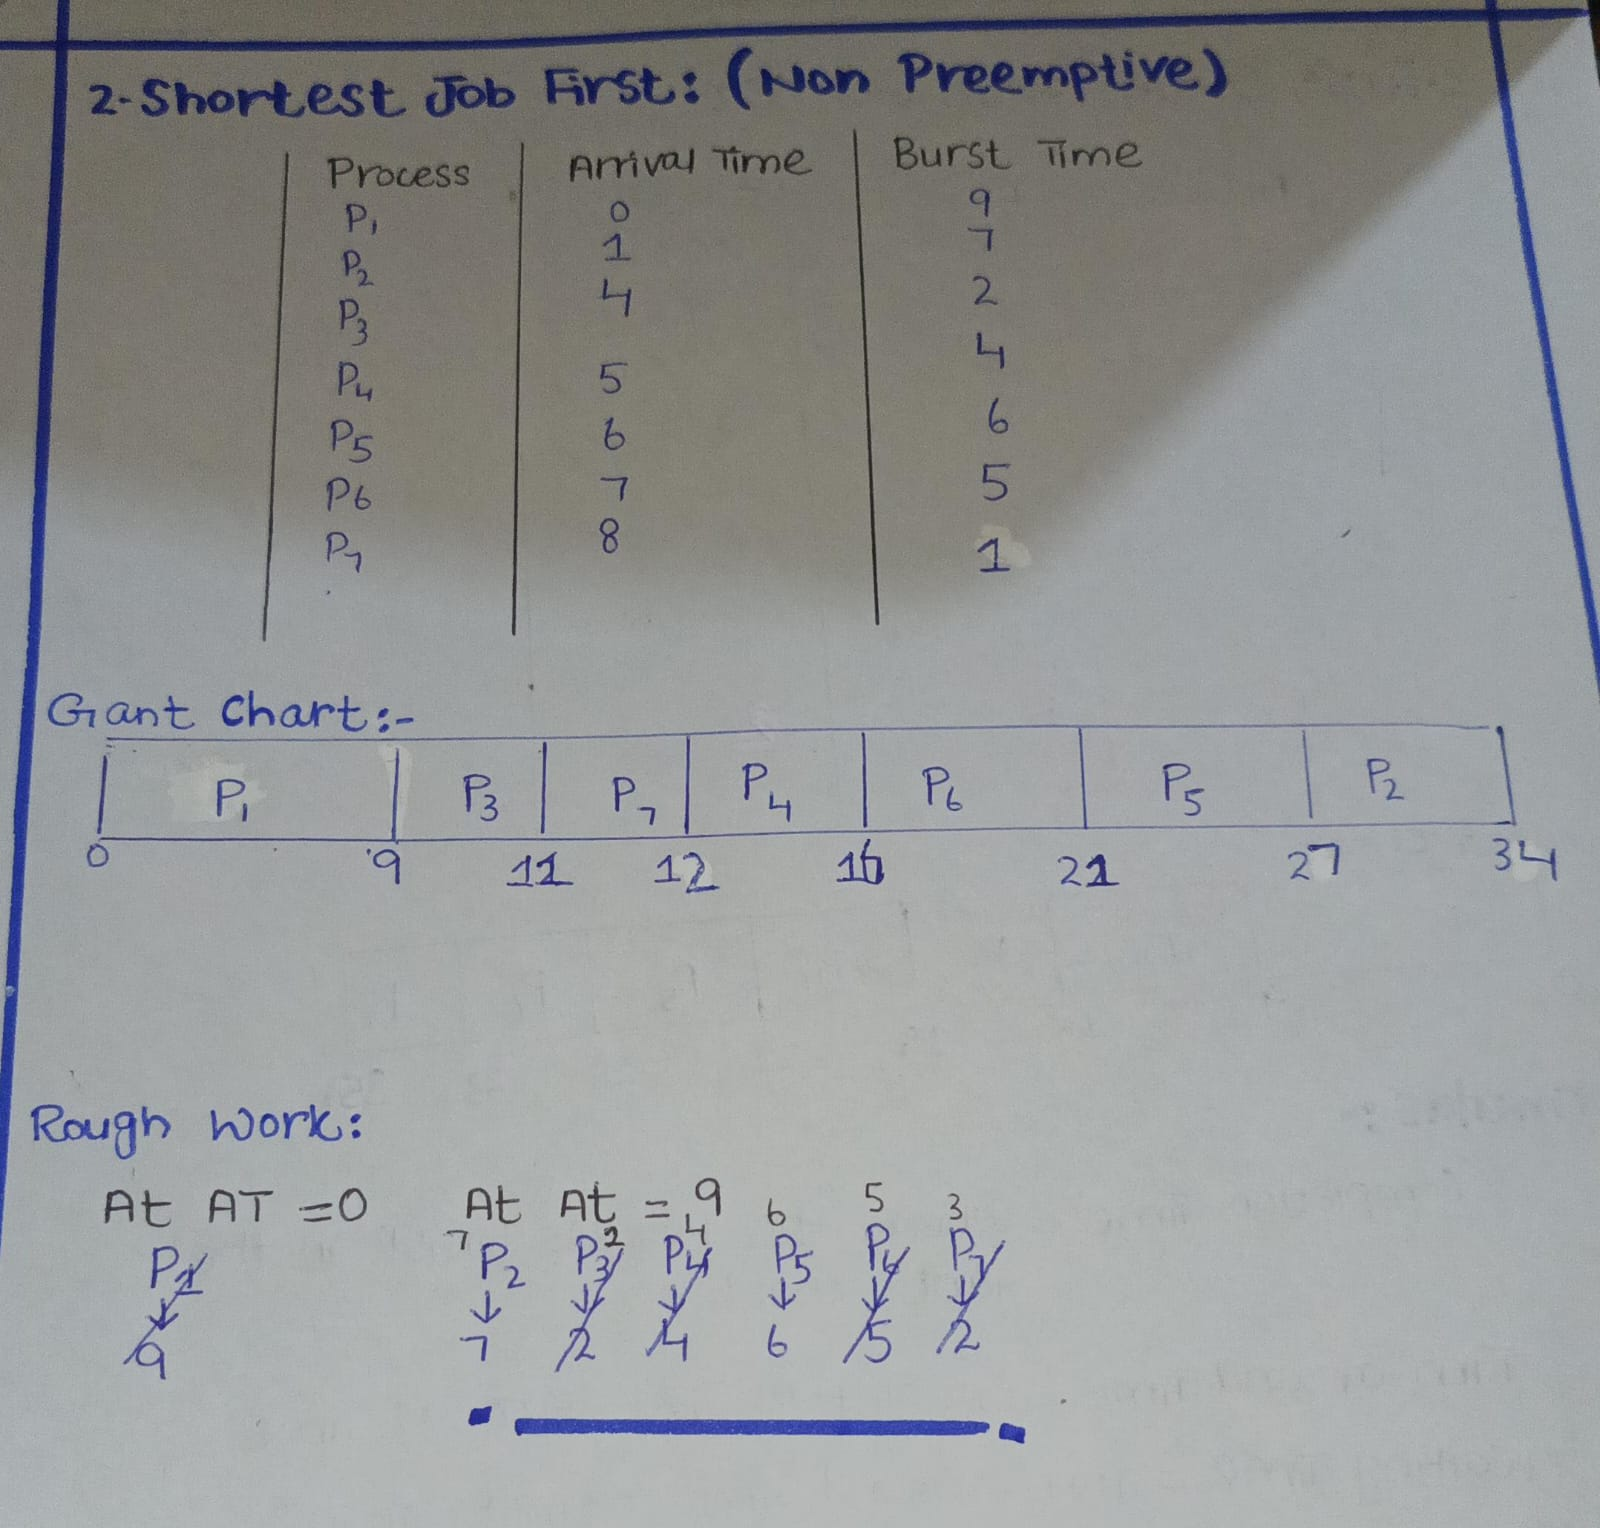 2-Shortest Job First: (Non Preemptive)
Process Arrival Time Burst Time
P1 0 9
P2 1 7
P3 4 2
P4 5 4
P5 6 6
P6 7 5
P7 8 1
Gant Chart:-
P1 P3 P7 P4 P6 P5 P2
0 9 11 12 16 21 27 34
Rough Work:
At AT =0 At At = 9
7 2 4 6 5 3
P1 P2 P3 P4 P5 P6 P7
↓ ↓ ↓ ↓ ↓ ↓ ↓
9 7 2 4 6 5 2